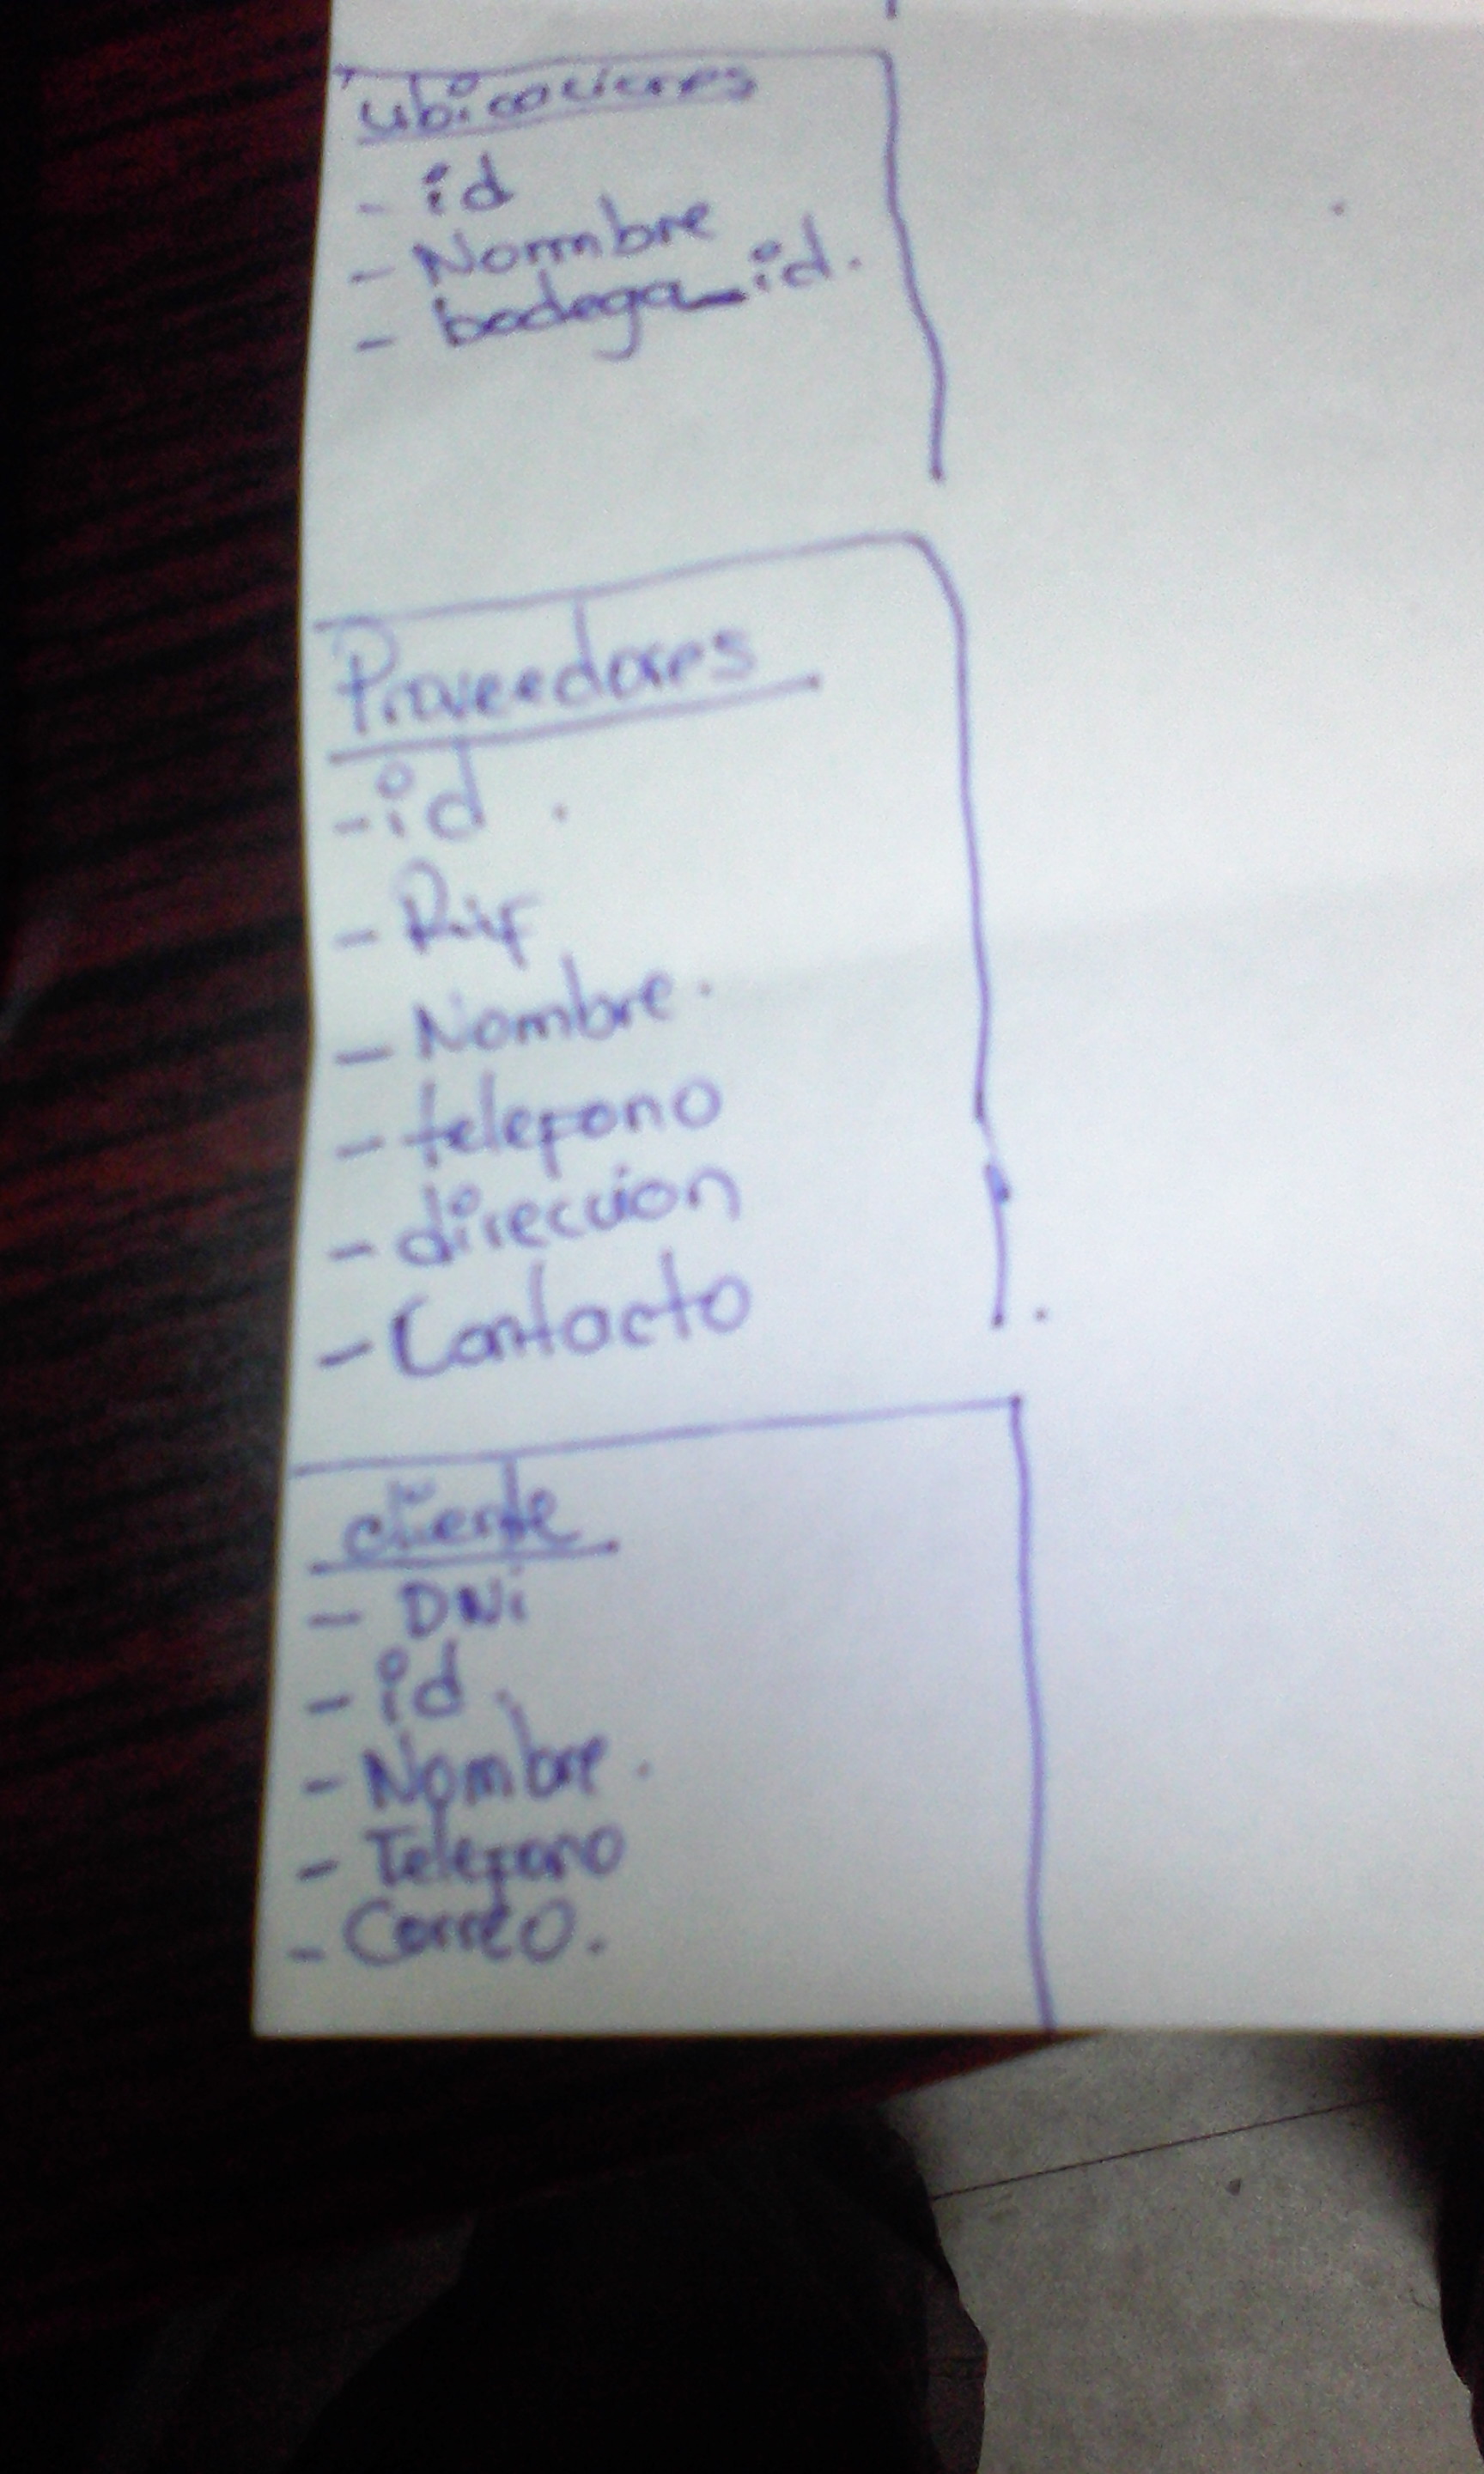 ubicaciones
- id
- Nombre
- bodega_id.
Proveedores
- id .
- Rif
- Nombre.
- telefono
- direccion
- Contacto
cliente
- DNi
- id
- Nombre.
- Telefono
- Correo.